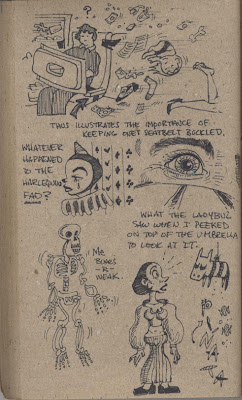 THUS ILLUSTRATES THE IMPORTANCE OF
KEEPING ONE'S SEATBELT BUCKLED.
WHATEVER
HAPPENED
TO THE
HARLEQUIN
FAD?
WHAT THE LADYBUG
SAW WHEN I PEEKED
ON TOP OF THE UMBRELLA
TO LOOK AT IT.
MY
BONES
-R-
WEAK.